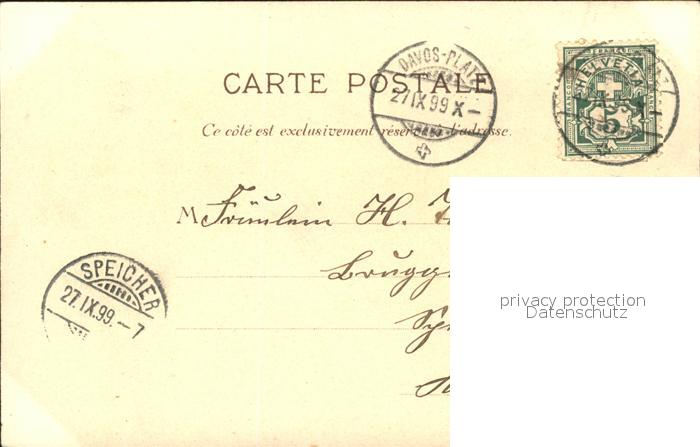 CARTE POSTALE
Ce côté est exclusivement réservé à l'adresse.
DAVOS-PLATZ
27.IX.99.X-
HELVETIA
5
M Fräulein H.
SPEICHER
27.IX.99.-7
privacy protection
Datenschutz